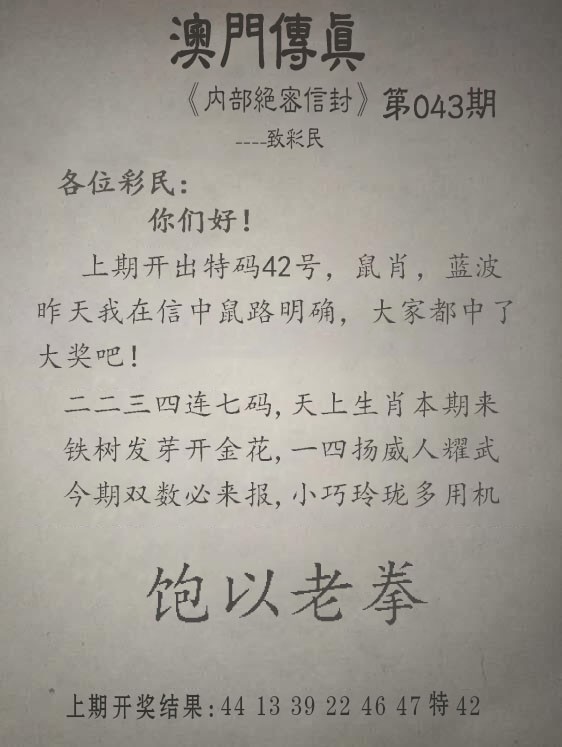 澳門傳真
《内部絕密信封》第043期
----致彩民
各位彩民：
你们好！
上期开出特码42号，鼠肖，蓝波
昨天我在信中鼠路明确，大家都中了
大奖吧！
二二三四连七码,天上生肖本期来
铁树发芽开金花,一四扬威人耀武
今期双数必来报,小巧玲珑多用机
饱以老拳
上期开奖结果:44 13 39 22 46 47特42